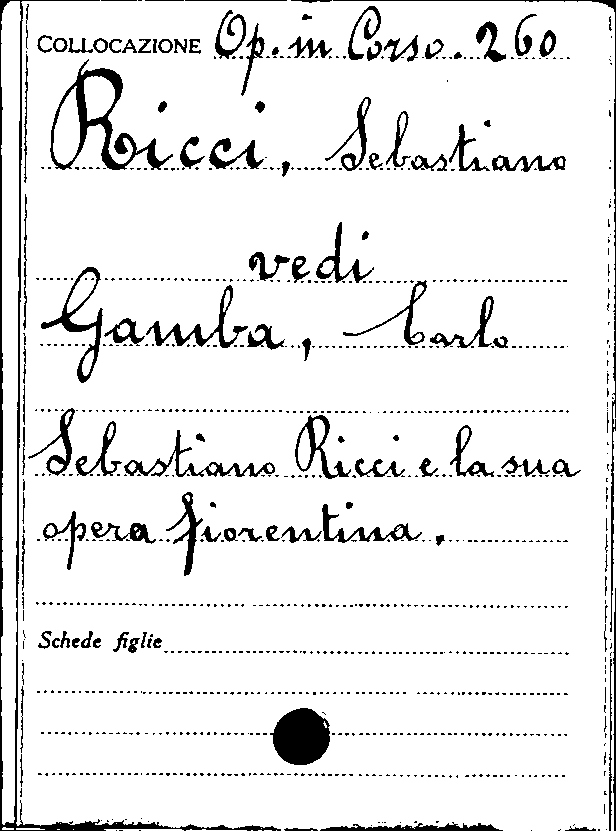 COLLOCAZIONE Op. in Corso. 260
Ricci, Sebastiano
vedi
Gamba, Carlo
Sebastiano Ricci e la sua
opera fiorentina.
Schede figlie